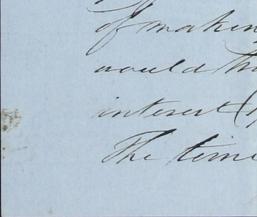 of making
would th
interest (
The time